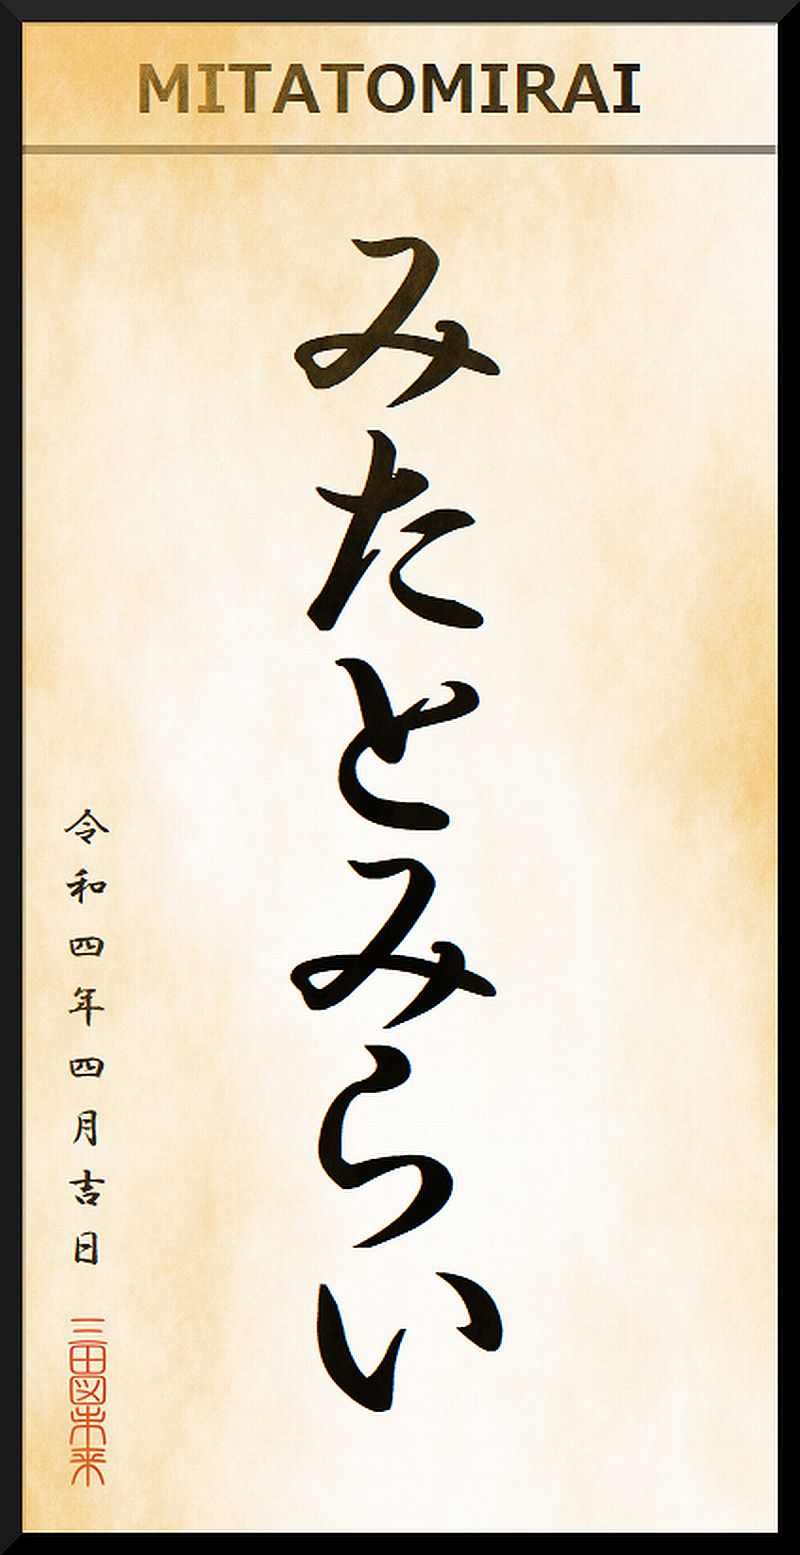 MITATOMIRAI
みたとみらい
令和四年四月吉日
三田図未来